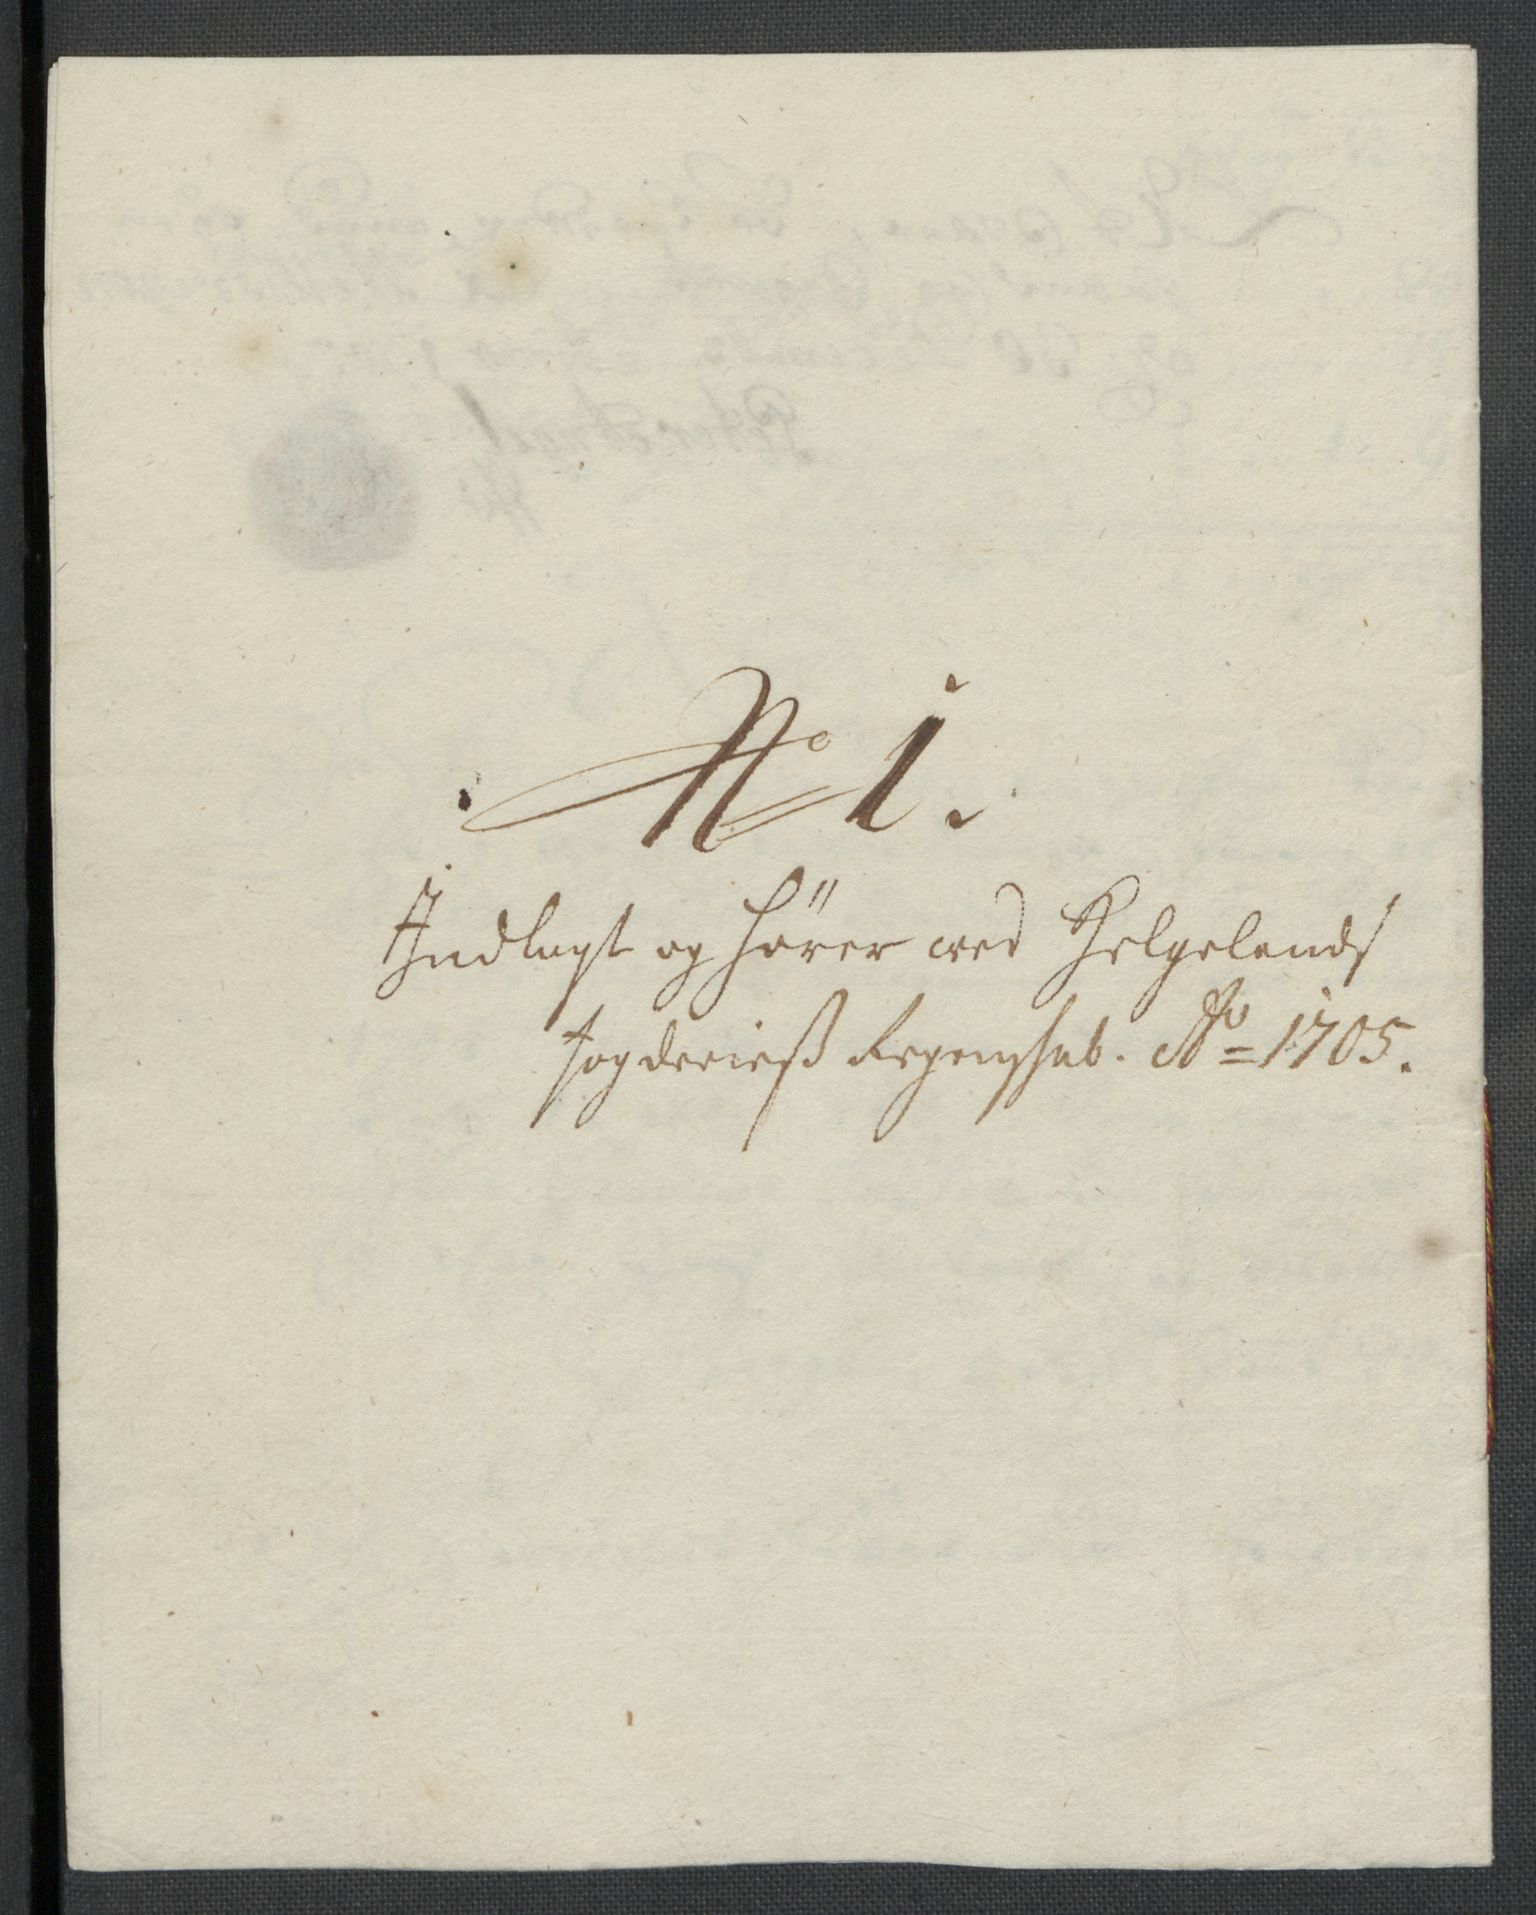 No 1.
Indlagt og hörer wed Helgelands
fogderieß Regenskab. Ao 1705.